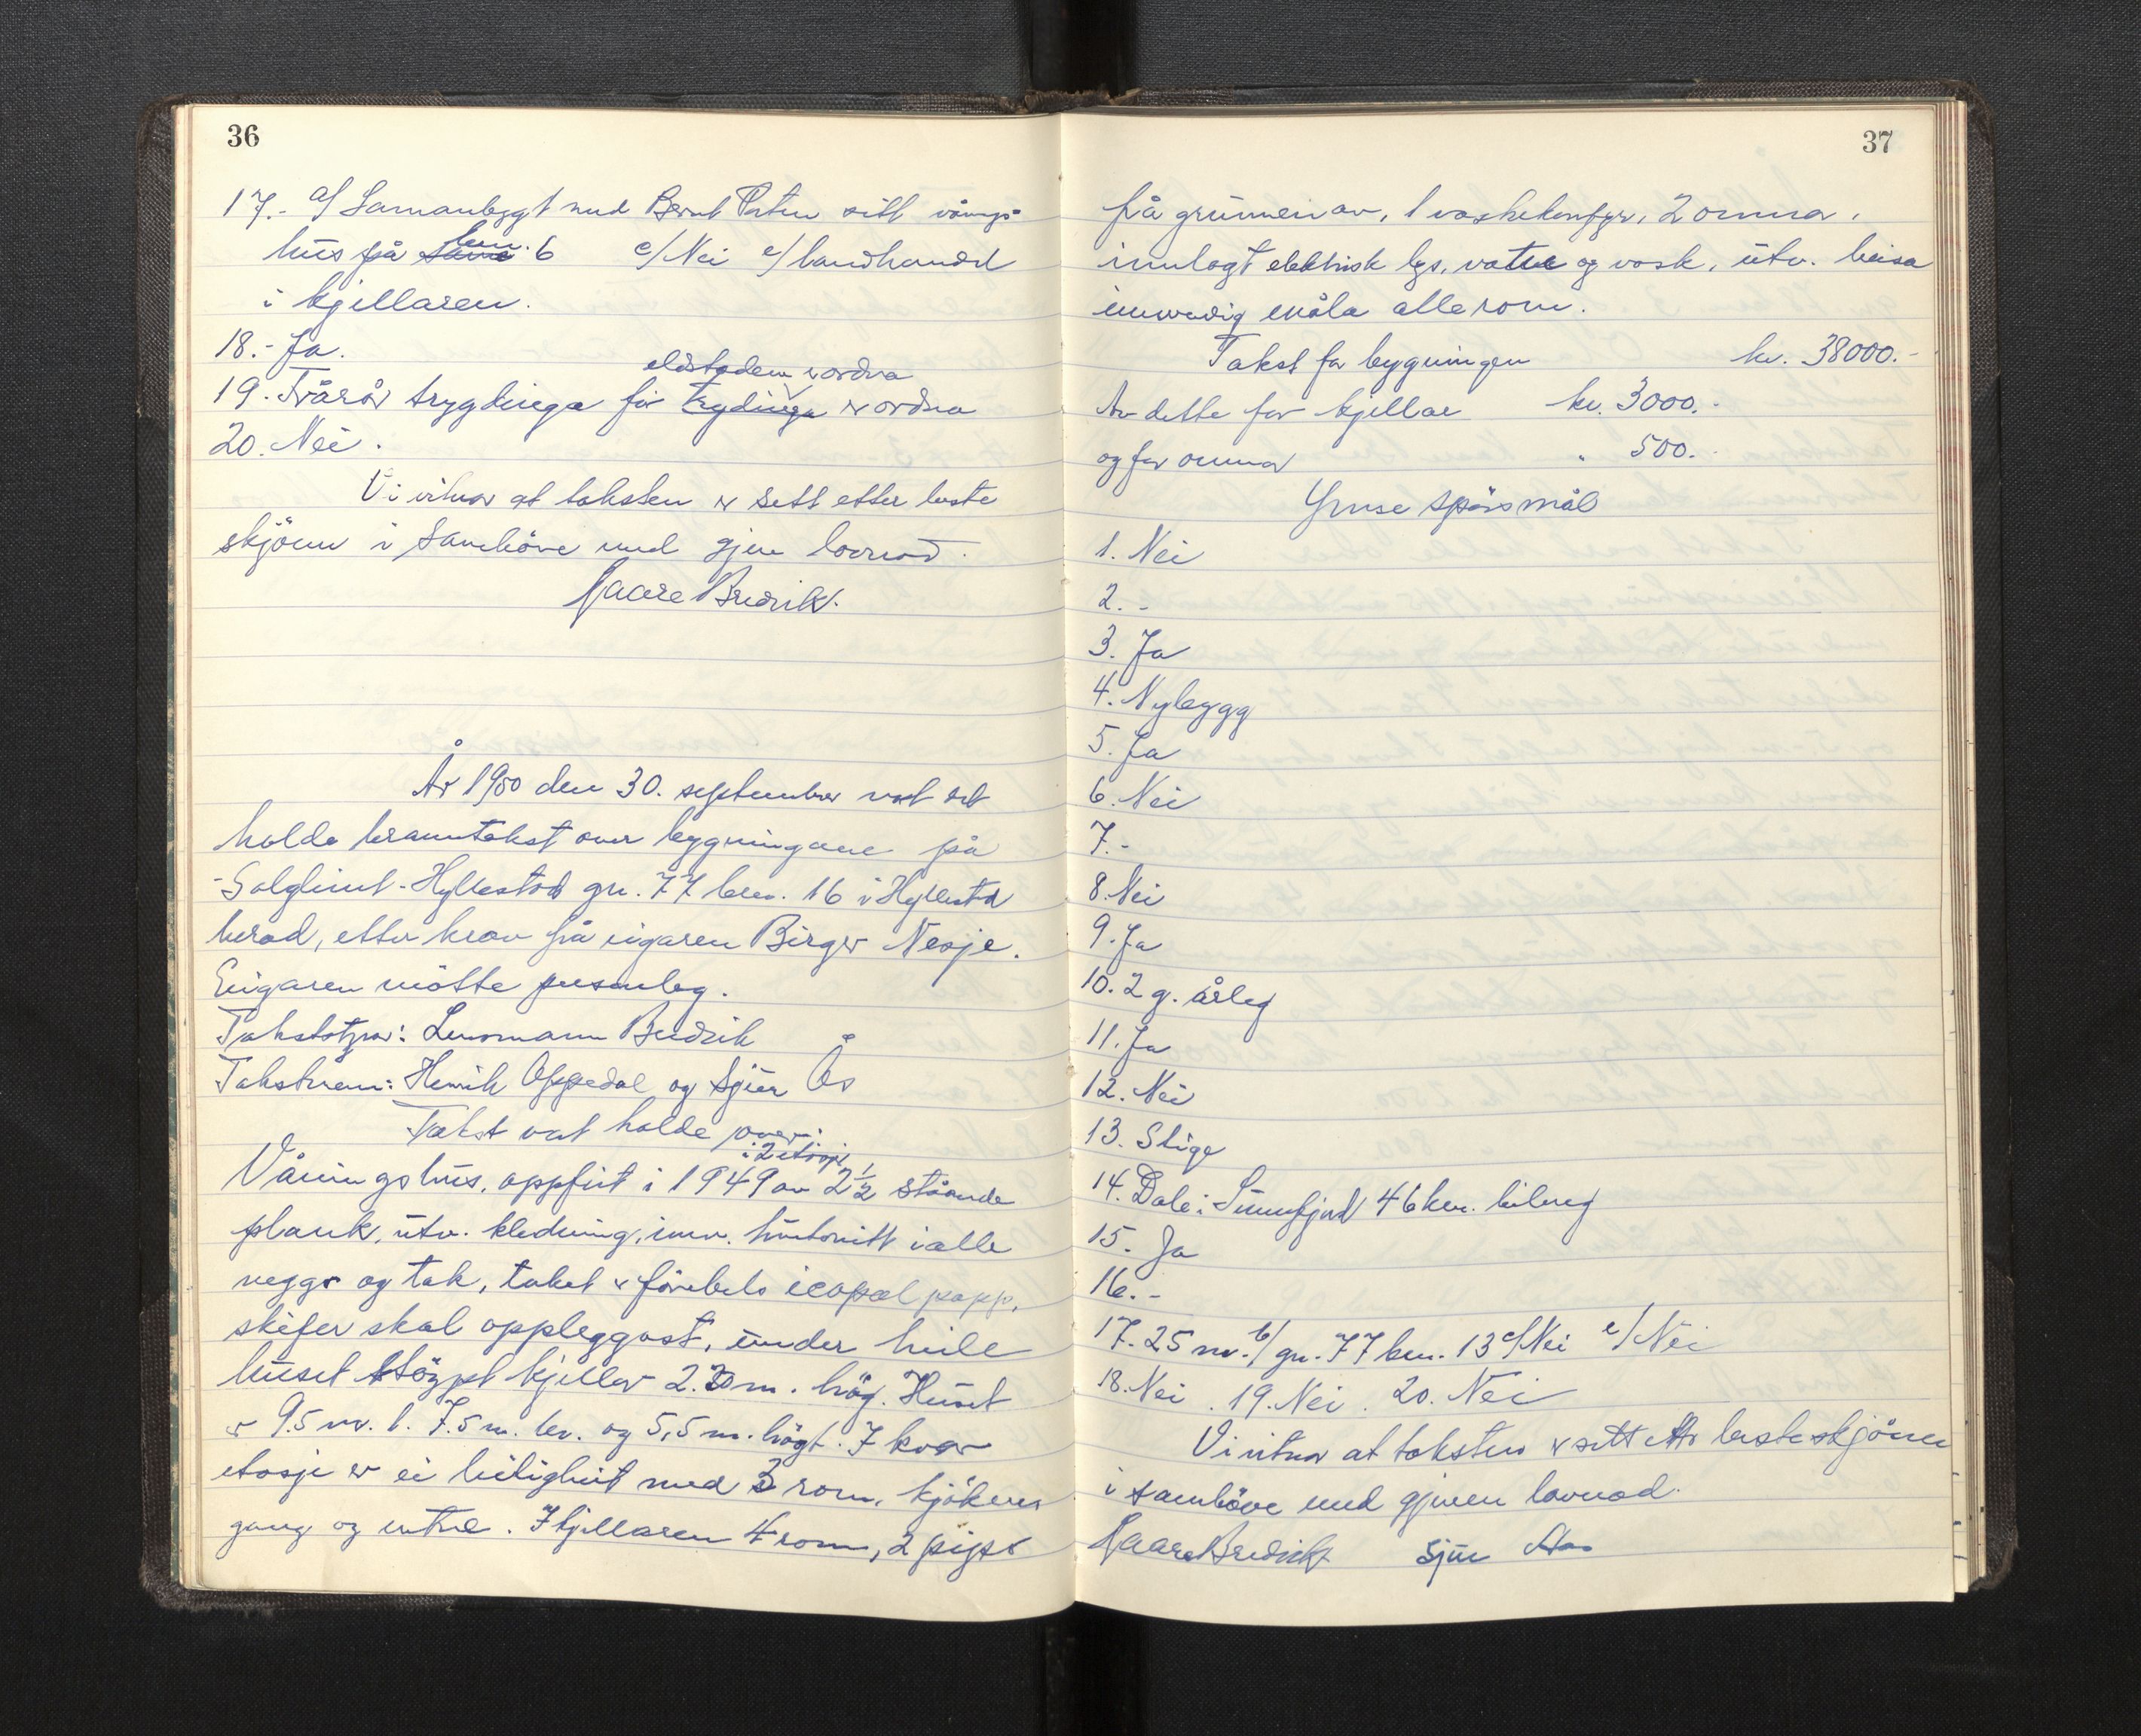 36
17.- a/ Samanbygt med Bernt Porten sitt vånings-
hus på bnr. 6 c/ Nei e/ landhandel
i kjellaren.
18.- Ja.
eldstaden er ordna
19. Tråråd trygdinga før trygdinga er ordna
20. Nei.
Vi vitnar at taksten er sett etter beste
skjönn i samhöve med gjeve lovnad.
Kaare Bredvik.
År 1950 den 30. september vart det
halde branntakst over bygningane på
"Solglimt"-Hyllestad gn. 77 brn. 16 i Hyllestad
herad, etter krav frå eigaren Birger Nesje.
Eigaren mötte personleg.
Takststyrar: Lensmann Bredvik
Takstmenn: Henrik Oppedal og Sjur Ås
Takst vart halde over:
i 2 etasjer
Våningshus, oppført i 1949 av 2½ ståande
plank, utv. kledning, innv. huntonitt i alle
vegger og tak, taket er förebels icopal papp,
skifer skal oppleggast, under heile
huset stöypt kjellar 2.30 m. hög. Huset
er 9.5 m. l. 7.5 m. br. og 5,5 m. högt. I kvar
etasje er ei leilighet med 3 rom, kjöken
gang og entre. I kjellaren 4 rom, 2 pipe
37
frå grunnen av, 1 vaskekomfyr, 2 omnar,
innlagt elektrisk lys, vatn og vask, utv. beisa
innvendig måla alle rom.
Takst for bygningen kr. 38000.-
Av dette for kjellar kr. 3000.-
og for omnar " 500.-
Ymse spörsmål
1. Nei
2. -
3. Ja
4. Nybygg
5. Ja
6. Nei
7. -
8. Nei
9. Ja
10. 2 g. årleg
11. Ja
12. Nei
13. Stige
14. Dale i Sunnfjord 46 km. bilveg
15. Ja
16. -
17. 25 m. b/ gn. 77 bn. 13 c/ Nei e/ Nei
18. Nei. 19. Nei. 20. Nei
Vi vitnar at taksten er sett etter beste skjönn
i samhöve med gjeven lovnad.
Kaare Bredvik Sjur Aas